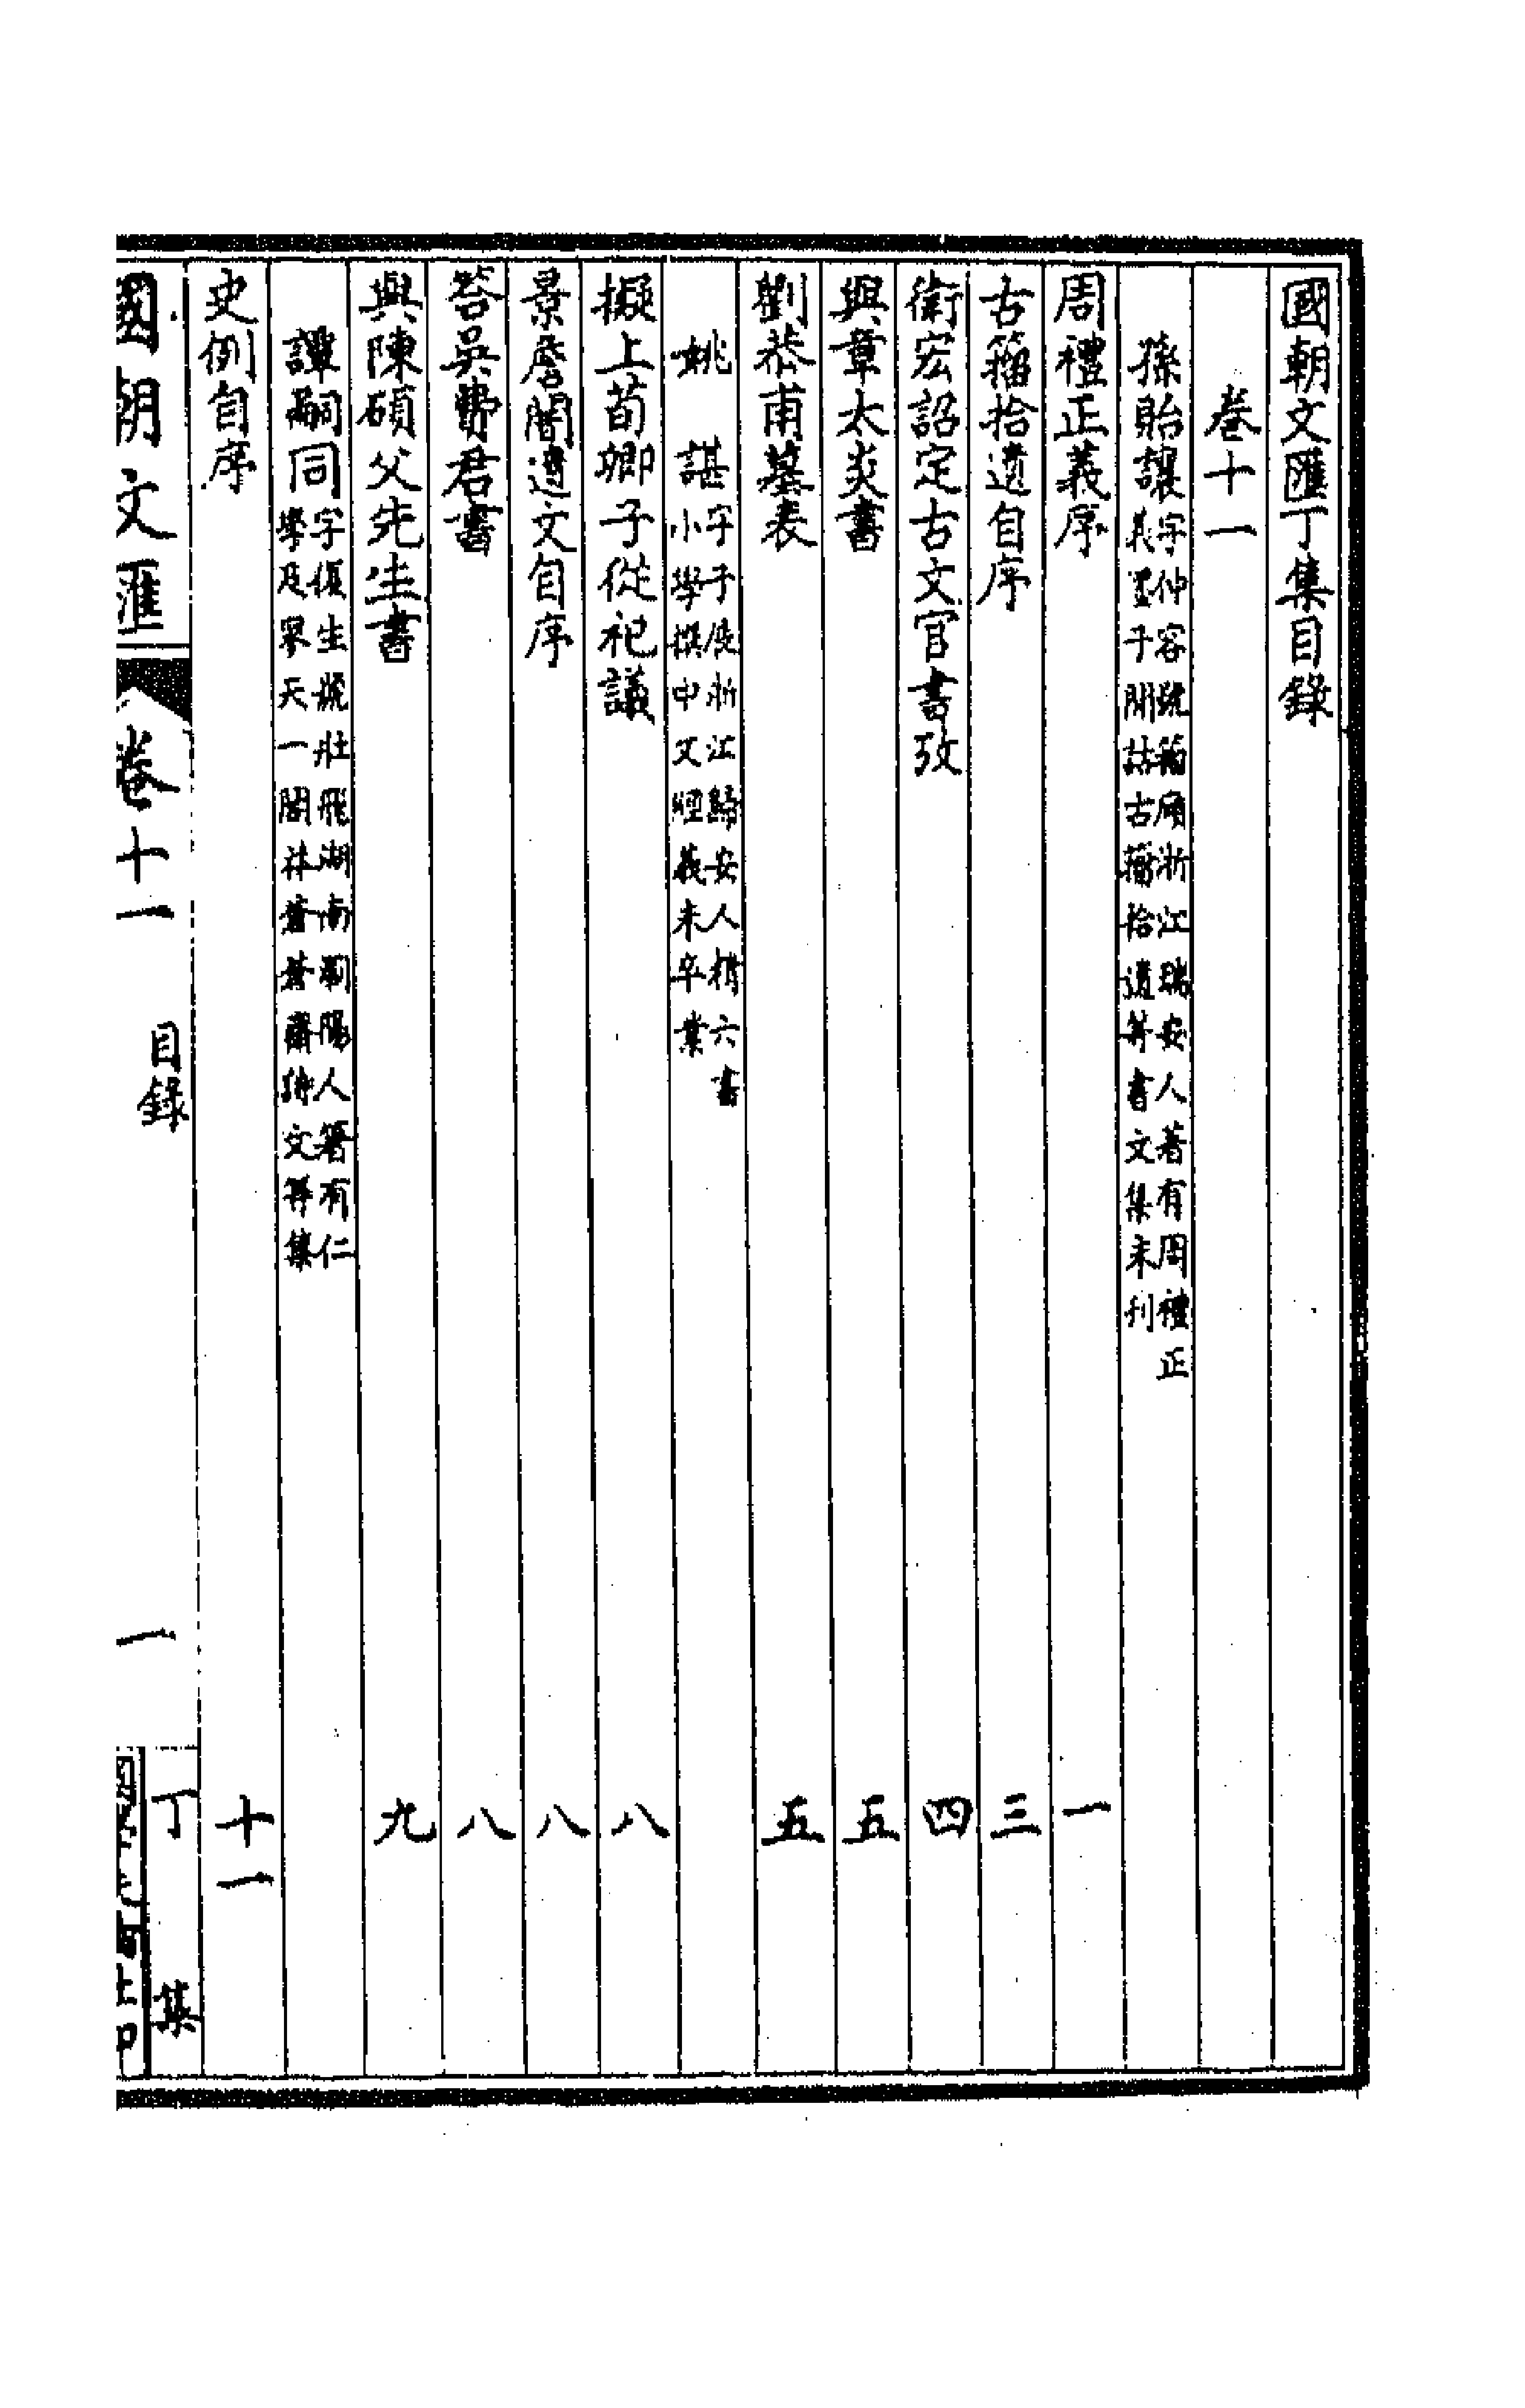 國朝文匯丁集目錄
卷十一
孫詒讓字仲容號籀廎浙江瑞安人著有周禮正
義墨子閒詁古籀拾遺等書文集未刊
周禮正義序 一
古籀拾遺自序 三
衛宏詔定古文官書攷 四
與章太炎書 五
劉恭甫墓表 五
姚諶字子展浙江歸安人精六書
小學撰中文經義未卒業
擬上荀卿子從祀議 八
景詹闇遺文自序 八
答吳費君書 八
與陳碩父先生書 九
譚嗣同字復生號壯飛湖南瀏陽人著有仁
學及寥天一閣莽蒼蒼齋詩文等集
史例自序 十一
國朝文匯 卷十一 目錄 一 丁集